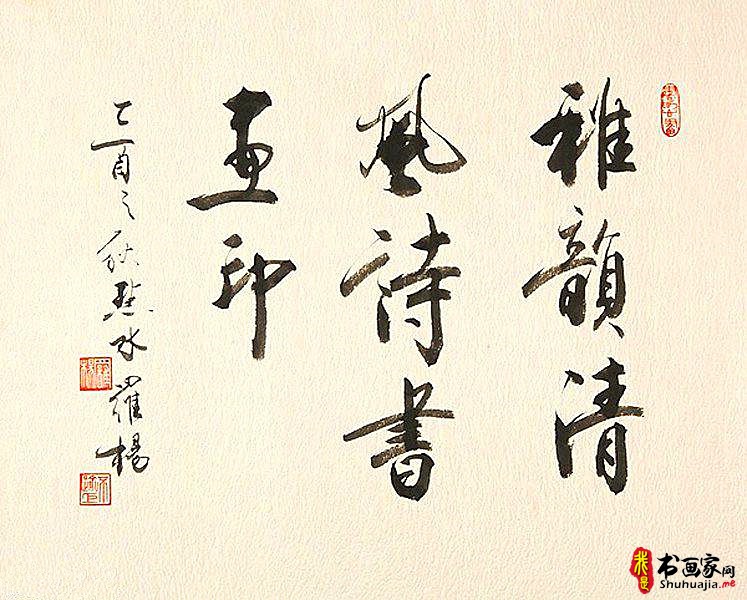 雅韻清
風詩書
畫印
乙酉之秋 水羅楊
我是
书画家网
Shuhuajia.me